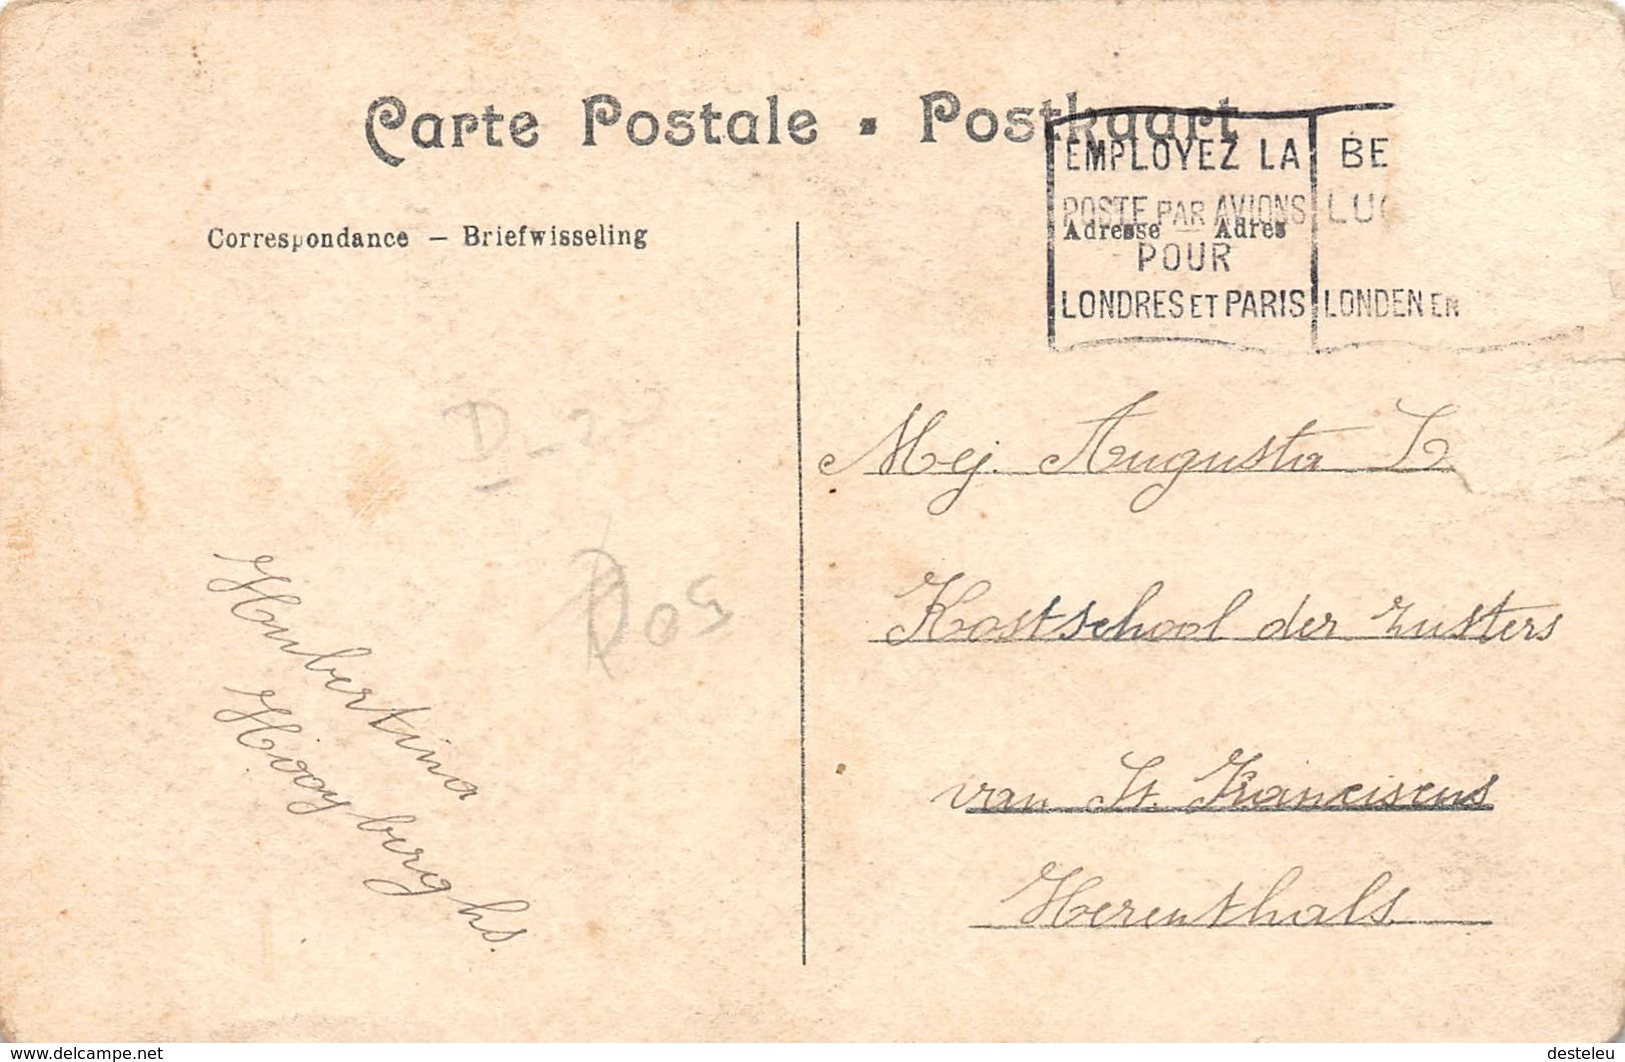 Carte Postale - Postkaart
EMPLOYEZ LA BE
POSTE PAR AVIONS LUC
Correspondance — Briefwisseling
Adresse — Adres
POUR
LONDRES ET PARIS LONDEN EN
Mej. Augusta
Kostschool der zusters
van St. Franciscus
Herenthals
Hubertina
Hooyberghs.
www.delcampe.net
desteleu